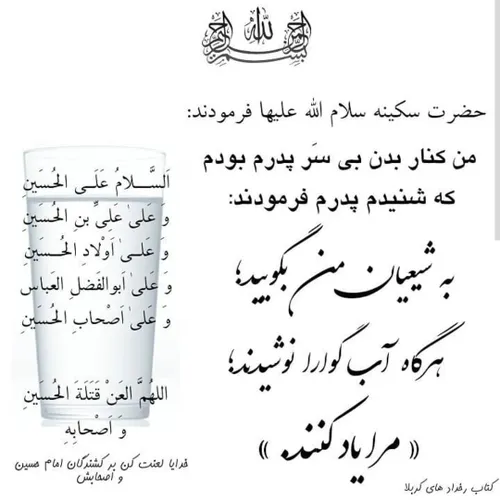 بسم الله الرحمن الرحیم
حضرت سکینه سلام الله علیها فرمودند:
من کنار بدن بی سَر پدرم بودم
که شنیدم پدرم فرمودند:
به شیعیان من بگویید؛
هرگاه آب گوارا نوشیدند؛
« مرا یاد کنند. »
اَلسَّلامُ عَلَی الحُسَینِ
وَ عَلیٰ عَلِیِّ بنِ الحُسَینِ
وَ عَلیٰ اَوْلادِ الحُسَینِ
وَ عَلیٰ اَبوالفَضلِ العَباسِ
وَ عَلیٰ اَصْحابِ الحُسَینِ
اللهُمَّ العَنْ قَتَلَةَ الحُسَینِ
وَ اَصْحابِهِ
خدایا لعنت کن بر کشندگان امام حسین
و اصحابش
کتاب رخداد های کربلا